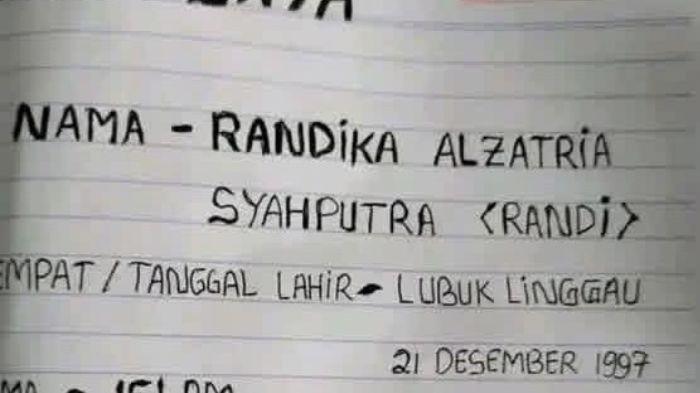 NAMA - RANDiKA ALZATRiA
SYAHPUTRA <RANDi>
EMPAT / TANGGAL LAHiR - LUBUK LiNGGAU
21 DESEMBER 1997